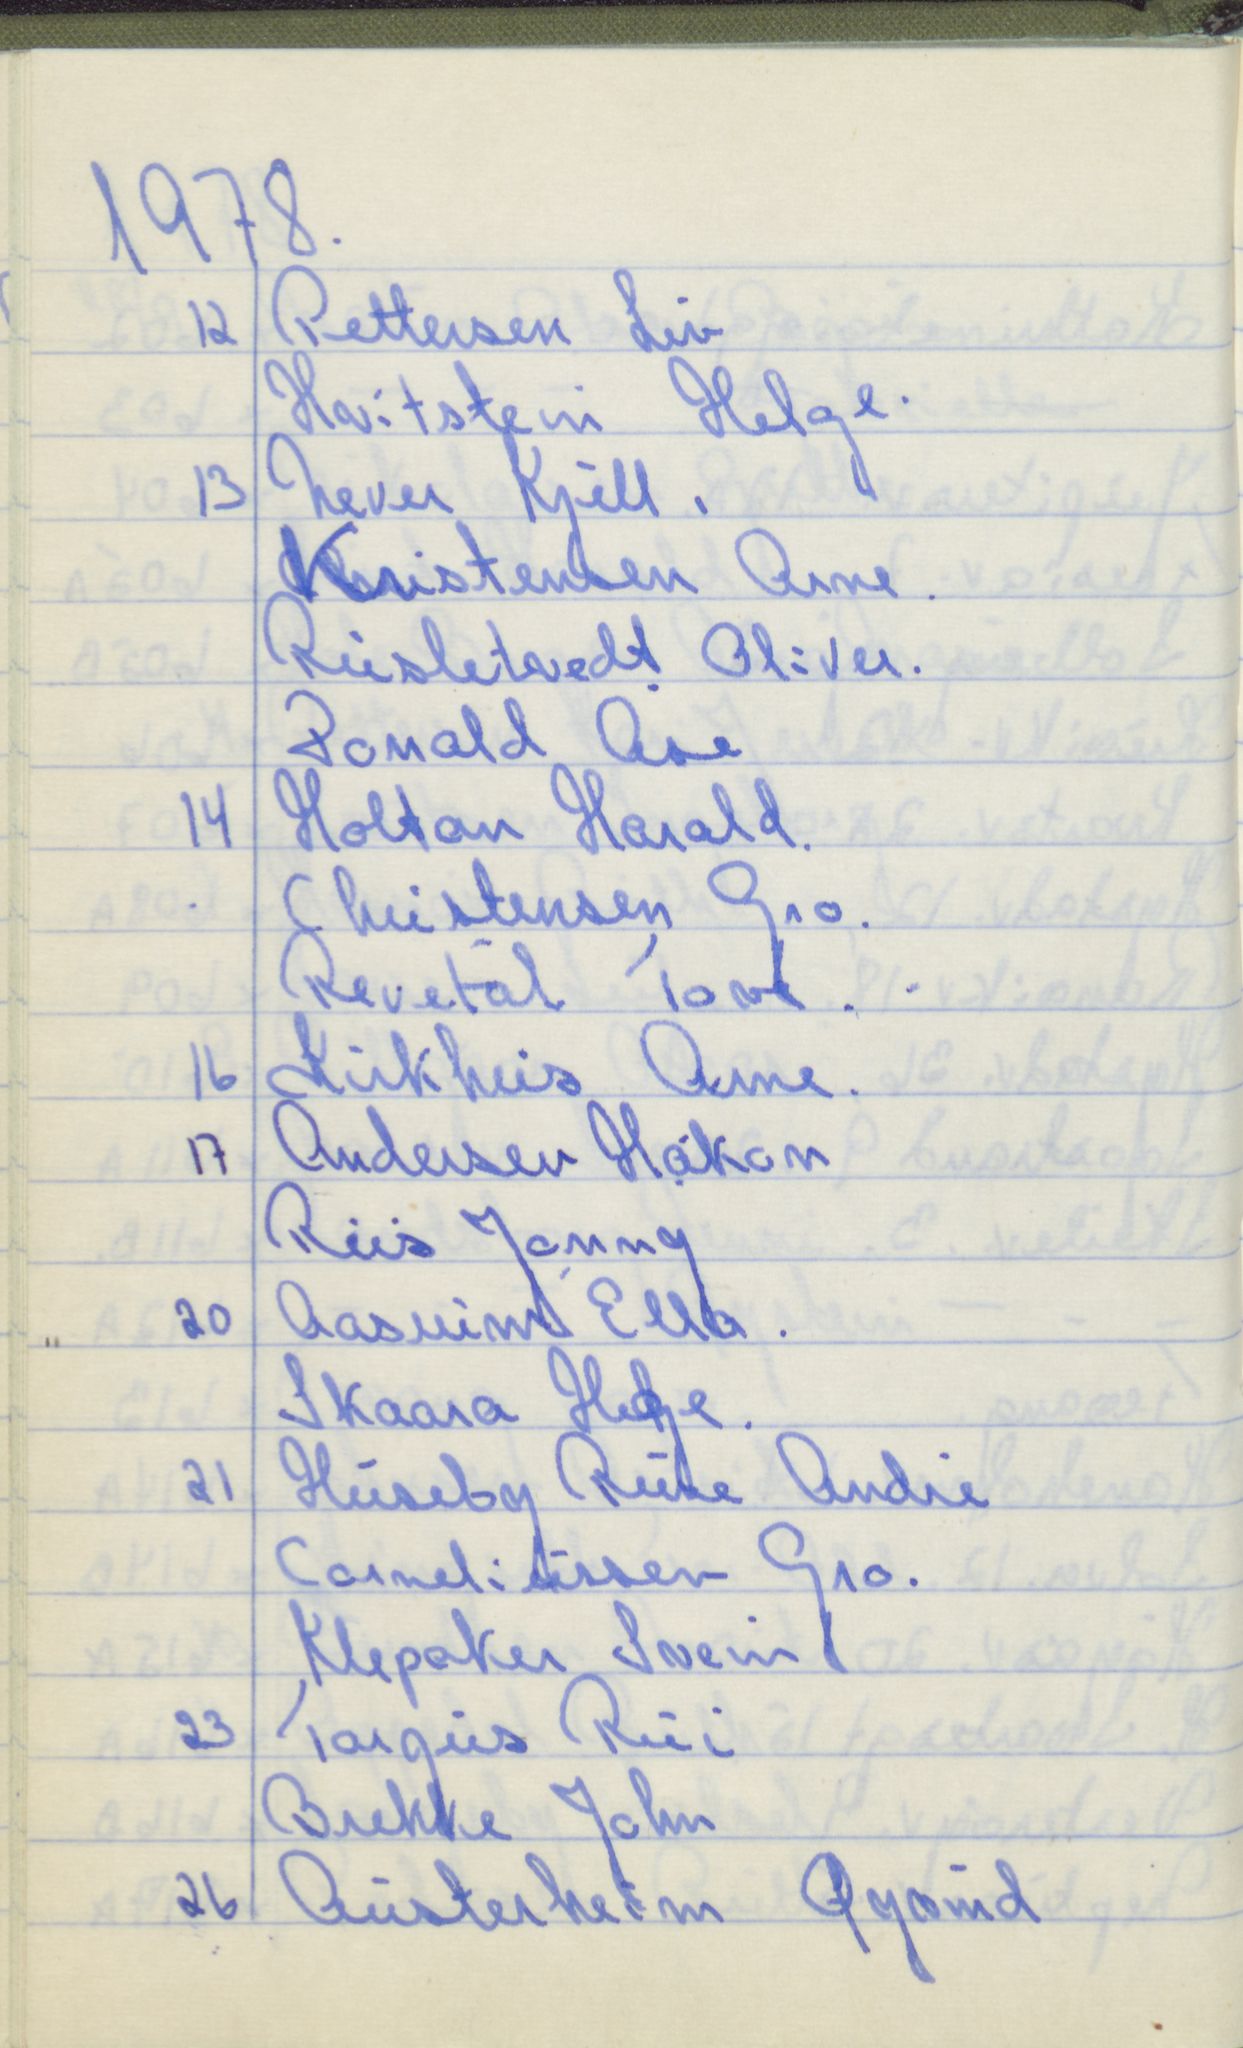 1978.
12 Pettersen Liv
Hvitstein Helge.
13 Never Kjell.
Kristensen Arne.
Rusletvedt Oliver.
Ronald Åse
14 Holtan Harald.
Christensen Gro.
Revetal Tove.
16 Kirkhus Arne.
17 Andersen Håkon
Riis Jonny
20 Aasrum Ella.
Skaara Helge.
21 Huseby Rune André
Corneliussen Gro.
Klepaker Svein
23 Targus
Brekke John
26 Austerheim Øyvind